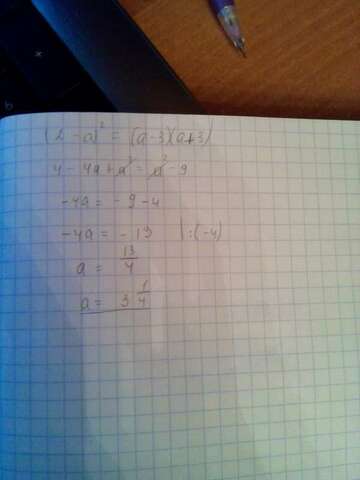 (2-a)² = (a-3)(a+3)
4-4a+a² = a²-9
-4a = -9-4
-4a = -13 |:(-4)
a = 13/4
a = 3 1/4